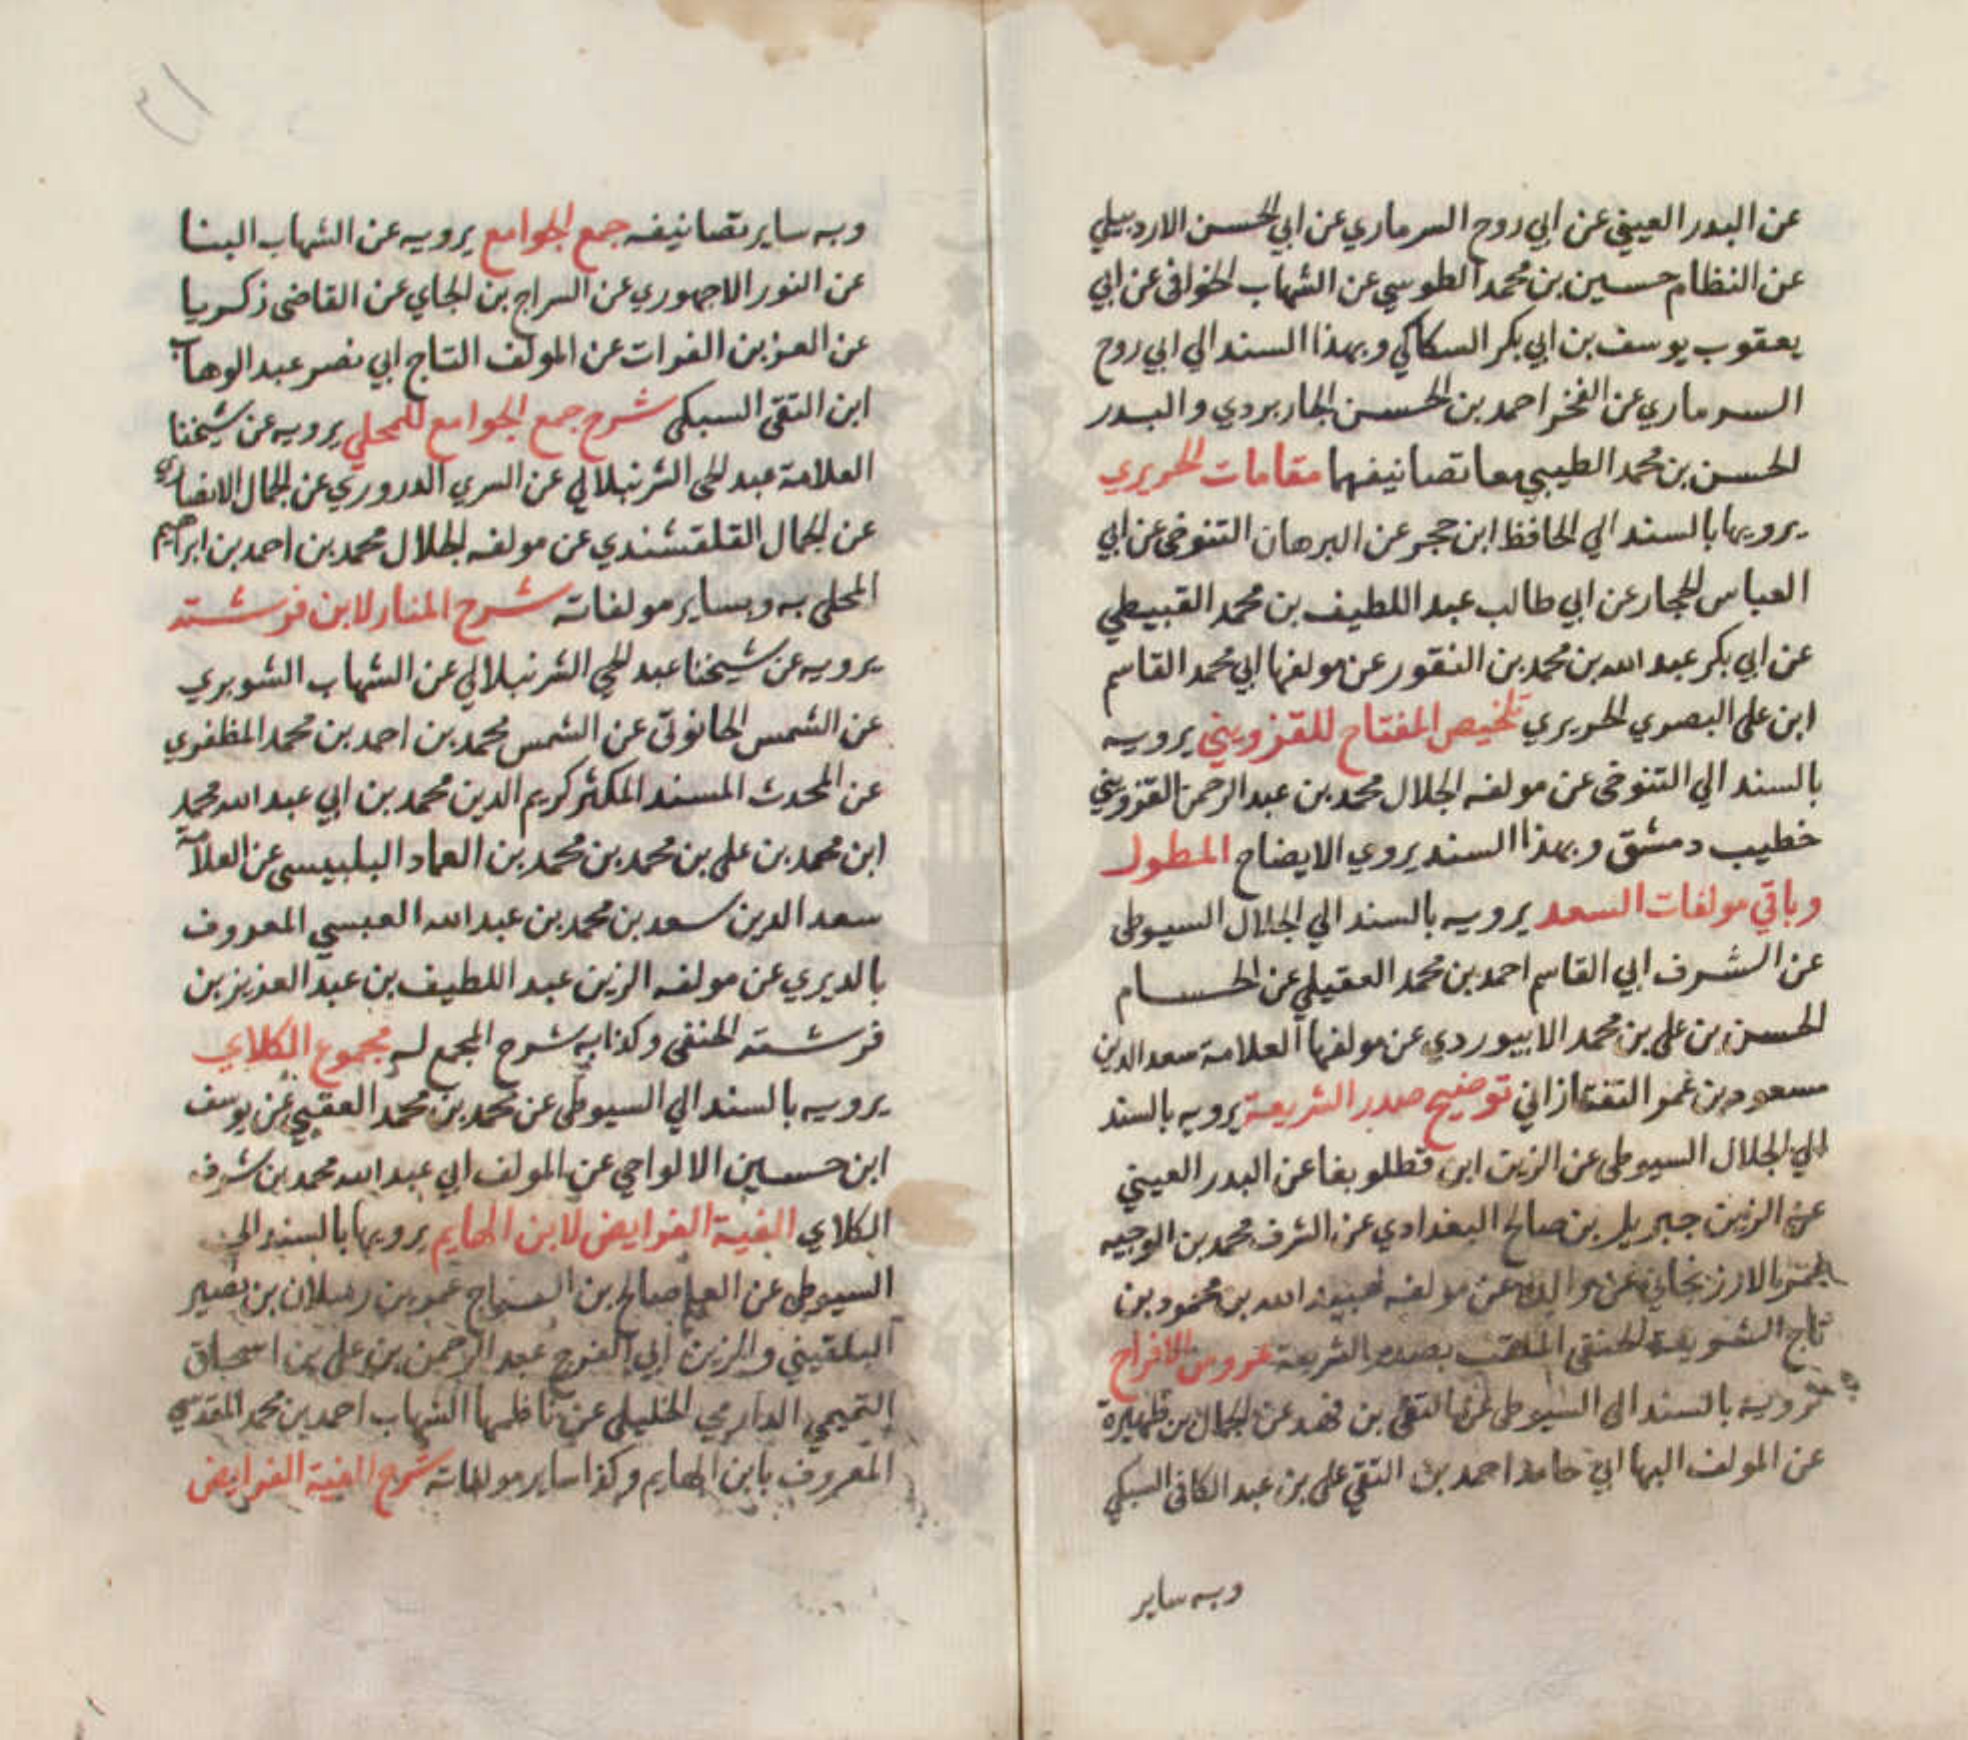 عن البدر العيني عن ابي روح السرماري عن ابي الحسن الاردبيلي
عن النظام حسين بن محمد الطوسي عن الشهاب الخوافي عن ابي
يعقوب يوسف بن ابي بكر السكاكي وبهذا السند الي ابي روح
السرماري عن الفخر احمد بن الحسن الجاربردي والبدر
الحسن بن محمد الطيبي معا تصانيفهما مقامات الحريري
يرويها بالسند الي الحافظ ابن حجر عن البرهان التنوخي عن ابي
العباس الحجار عن ابي طالب عبد اللطيف بن محمد القبيطي
عن ابي بكر عبد الله بن محمد بن النقور عن مولفها ابي محمد القاسم
ابن علي البصري الحريري تلخيص المفتاح للقزويني يرويه
بالسند الي التنوخي عن مولفه الجلال محمد بن عبد الرحمن القزويني
خطيب دمشق وبهذا السند يروي الايضاح المطول
وباقي مولفات السعد يرويه بالسند الي الجلال السيوطي
عن الشرف ابي القاسم احمد بن محمد العقيلي عن الحسام
الحسن بن علي بن محمد الابيوردي عن مولفها العلامة سعد الدين
مسعود بن عمر التفتازاني توضيح صدر الشريعة يرويه بالسند
الي الجلال السيوطي عن الزين ابن قطلوبغا عن البدر العيني
عن الزين جبريل بن صالح البغدادي عن الشرف محمد بن الوجيه
الارزنجاني عن والده عن مولفه عبيد الله بن محمود بن
تاج الشريعة الحنفي الملقب بصدر الشريعة عروس الافراح
يرويه بالسند الي السيوطي عن التقي بن فهد عن الجمال بن ظهيرة
عن المولف البها ابي حامد احمد بن التقي علي بن عبد الكافي السبكي
وبه ساير
وبه ساير تصانيفه جمع الجوامع يرويه عن الشهاب البنا
عن النور الاجهوري عن السراج بن الجاي عن القاضي زكريا
عن العز بن الفرات عن المولف التاج ابي نصر عبد الوهاب
ابن التقي السبكي شرح جمع الجوامع للمحلي يرويه عن شيخنا
العلامة عبد الحي الشرنبلالي عن السري الدروري عن الجمال الانصاري
عن الجمال القلقشندي عن مولفه الجلال محمد بن احمد بن ابراهيم
المحلي به وبساير مولفاته شرح المنار لابن فرشته
يرويه عن شيخنا عبد الحي الشرنبلالي عن الشهاب الشوبري
عن الشمس الحانوتي عن الشمس محمد بن احمد بن محمد المظفري
عن المحدث المسند المكثر كريم الدين محمد بن ابي عبد الله محمد
ابن محمد بن علي بن محمد بن محمد بن العماد البلبيسي عن العلامة
سعد الدين سعد بن محمد بن عبد الله العبسي المعروف
بالديري عن مولفه الزين عبد اللطيف بن عبد العزيز بن
فرشته الحنفي وكذا به شرح المجمع له مجموع الكلاي
يرويه بالسند الي السيوطي عن محمد بن محمد العقبي عن يوسف
ابن حسين الالواحي عن المولف ابي عبد الله محمد بن شرف
الكلاي الفية الفرايض لابن الهايم يرويها بالسند الي
السيوطي عن العلم صالح بن السراج عمر بن رسلان بن نصير
البلقيني والزين ابي الفرج عبد الرحمن بن علي بن اسحاق
التميمي الداري الخليلي عن ناظمها الشهاب احمد بن محمد المقدسي
المعروف بابن الهايم وكذا ساير مولفاته شرح الفية الفرايض